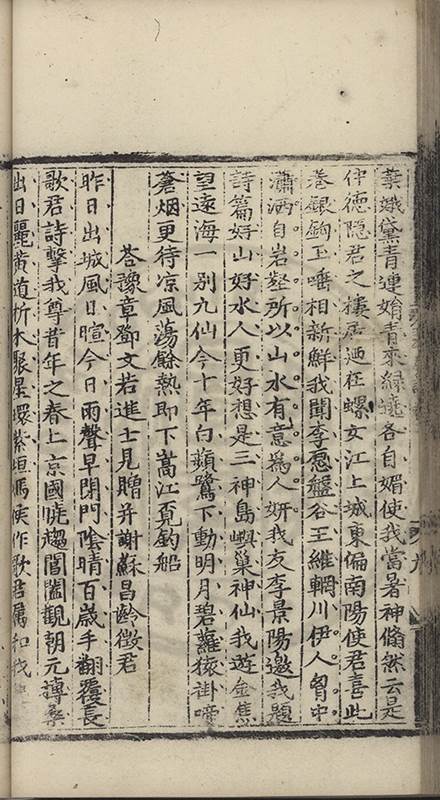 葉蛾黛青連娟青來綠繞各自媚使我當暑神翛然云是
伴德隱君之樓居迺在螺女江上城東偏南陽使君喜此
卷銀鉤玉唾相新鮮我聞李愿盤谷王維輞川伊人胷中
瀟洒自岩壑所以山水有意爲人妍我友李景陽邀我題
詩篇好山好水人更好想是三神島嶼巢神仙我遊金焦
望遠海一別九仙今十年白蘋鷺下動明月碧蘿猿掛啼
蒼烟更待凉風蕩餘熱即下蒿江覔釣船
荅豫章鄧文若進士見贈并謝蘇昌齡徵君
昨日出城風日暄今日雨聲早閉門陰晴百歲手翻覆長
歌君詩擊我尊昔年之春上京國曉趨閶闔觀朝元溥桑
出日麗黃道析木聚星環紫垣馮使作歌君屬和我